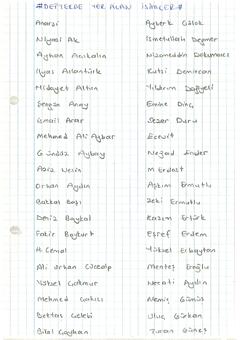 #DEFTERDE YER ALAN İSİMLER#
Anarzi
Nilgnai Ak
Ayhan Acıkalın
İlyas Aslantürk
Hidayet Altın
Sezgin Anay
İsmail Arar
Mehmed Ali Aybar
Gündüz Aybay
Aziz Nesin
Orhan Aydın
Bakkal Başı
Deniz Baykal
Fakir Baykurt
H. Cemal
Ali Orhan
Yüksel Çakmur
Mehmed
Bektaş Çelebi
Bilal Çayhan
Ayberk Gölok
İsmetullah Değmer
Nizameddin Dokumacı
Kutsi Demircan
Yıldırım Dağyeli
Emine Dinç
Sezer Duru
Ecevit
Nezad Ender
M Erdost
Aşkım Ermutlu
Zeki Ermutlu
Kazım Ertürk
Eşref Erdem
Yüksel Erbayton
Menteş Eroğlu
Necati Aydın
Memiş Gümüş
Uluç Gürkan
Turan Güneş